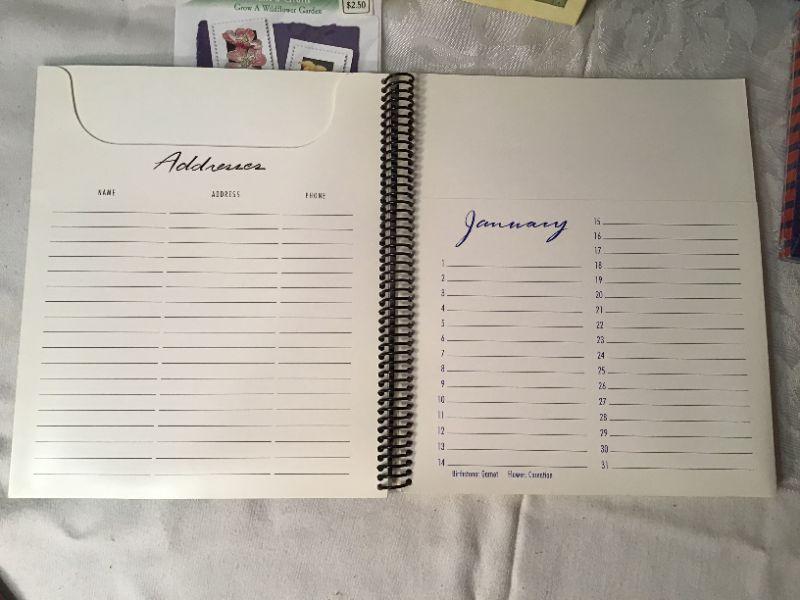 Grow A Wildflower Garden
$2.50
Addresses
NAME ADDRESS PHONE
January
1
2
3
4
5
6
7
8
9
10
11
12
13
14
Birthstone: Garnet Flower: Carnation
15
16
17
18
19
20
21
22
23
24
25
26
27
28
29
30
31